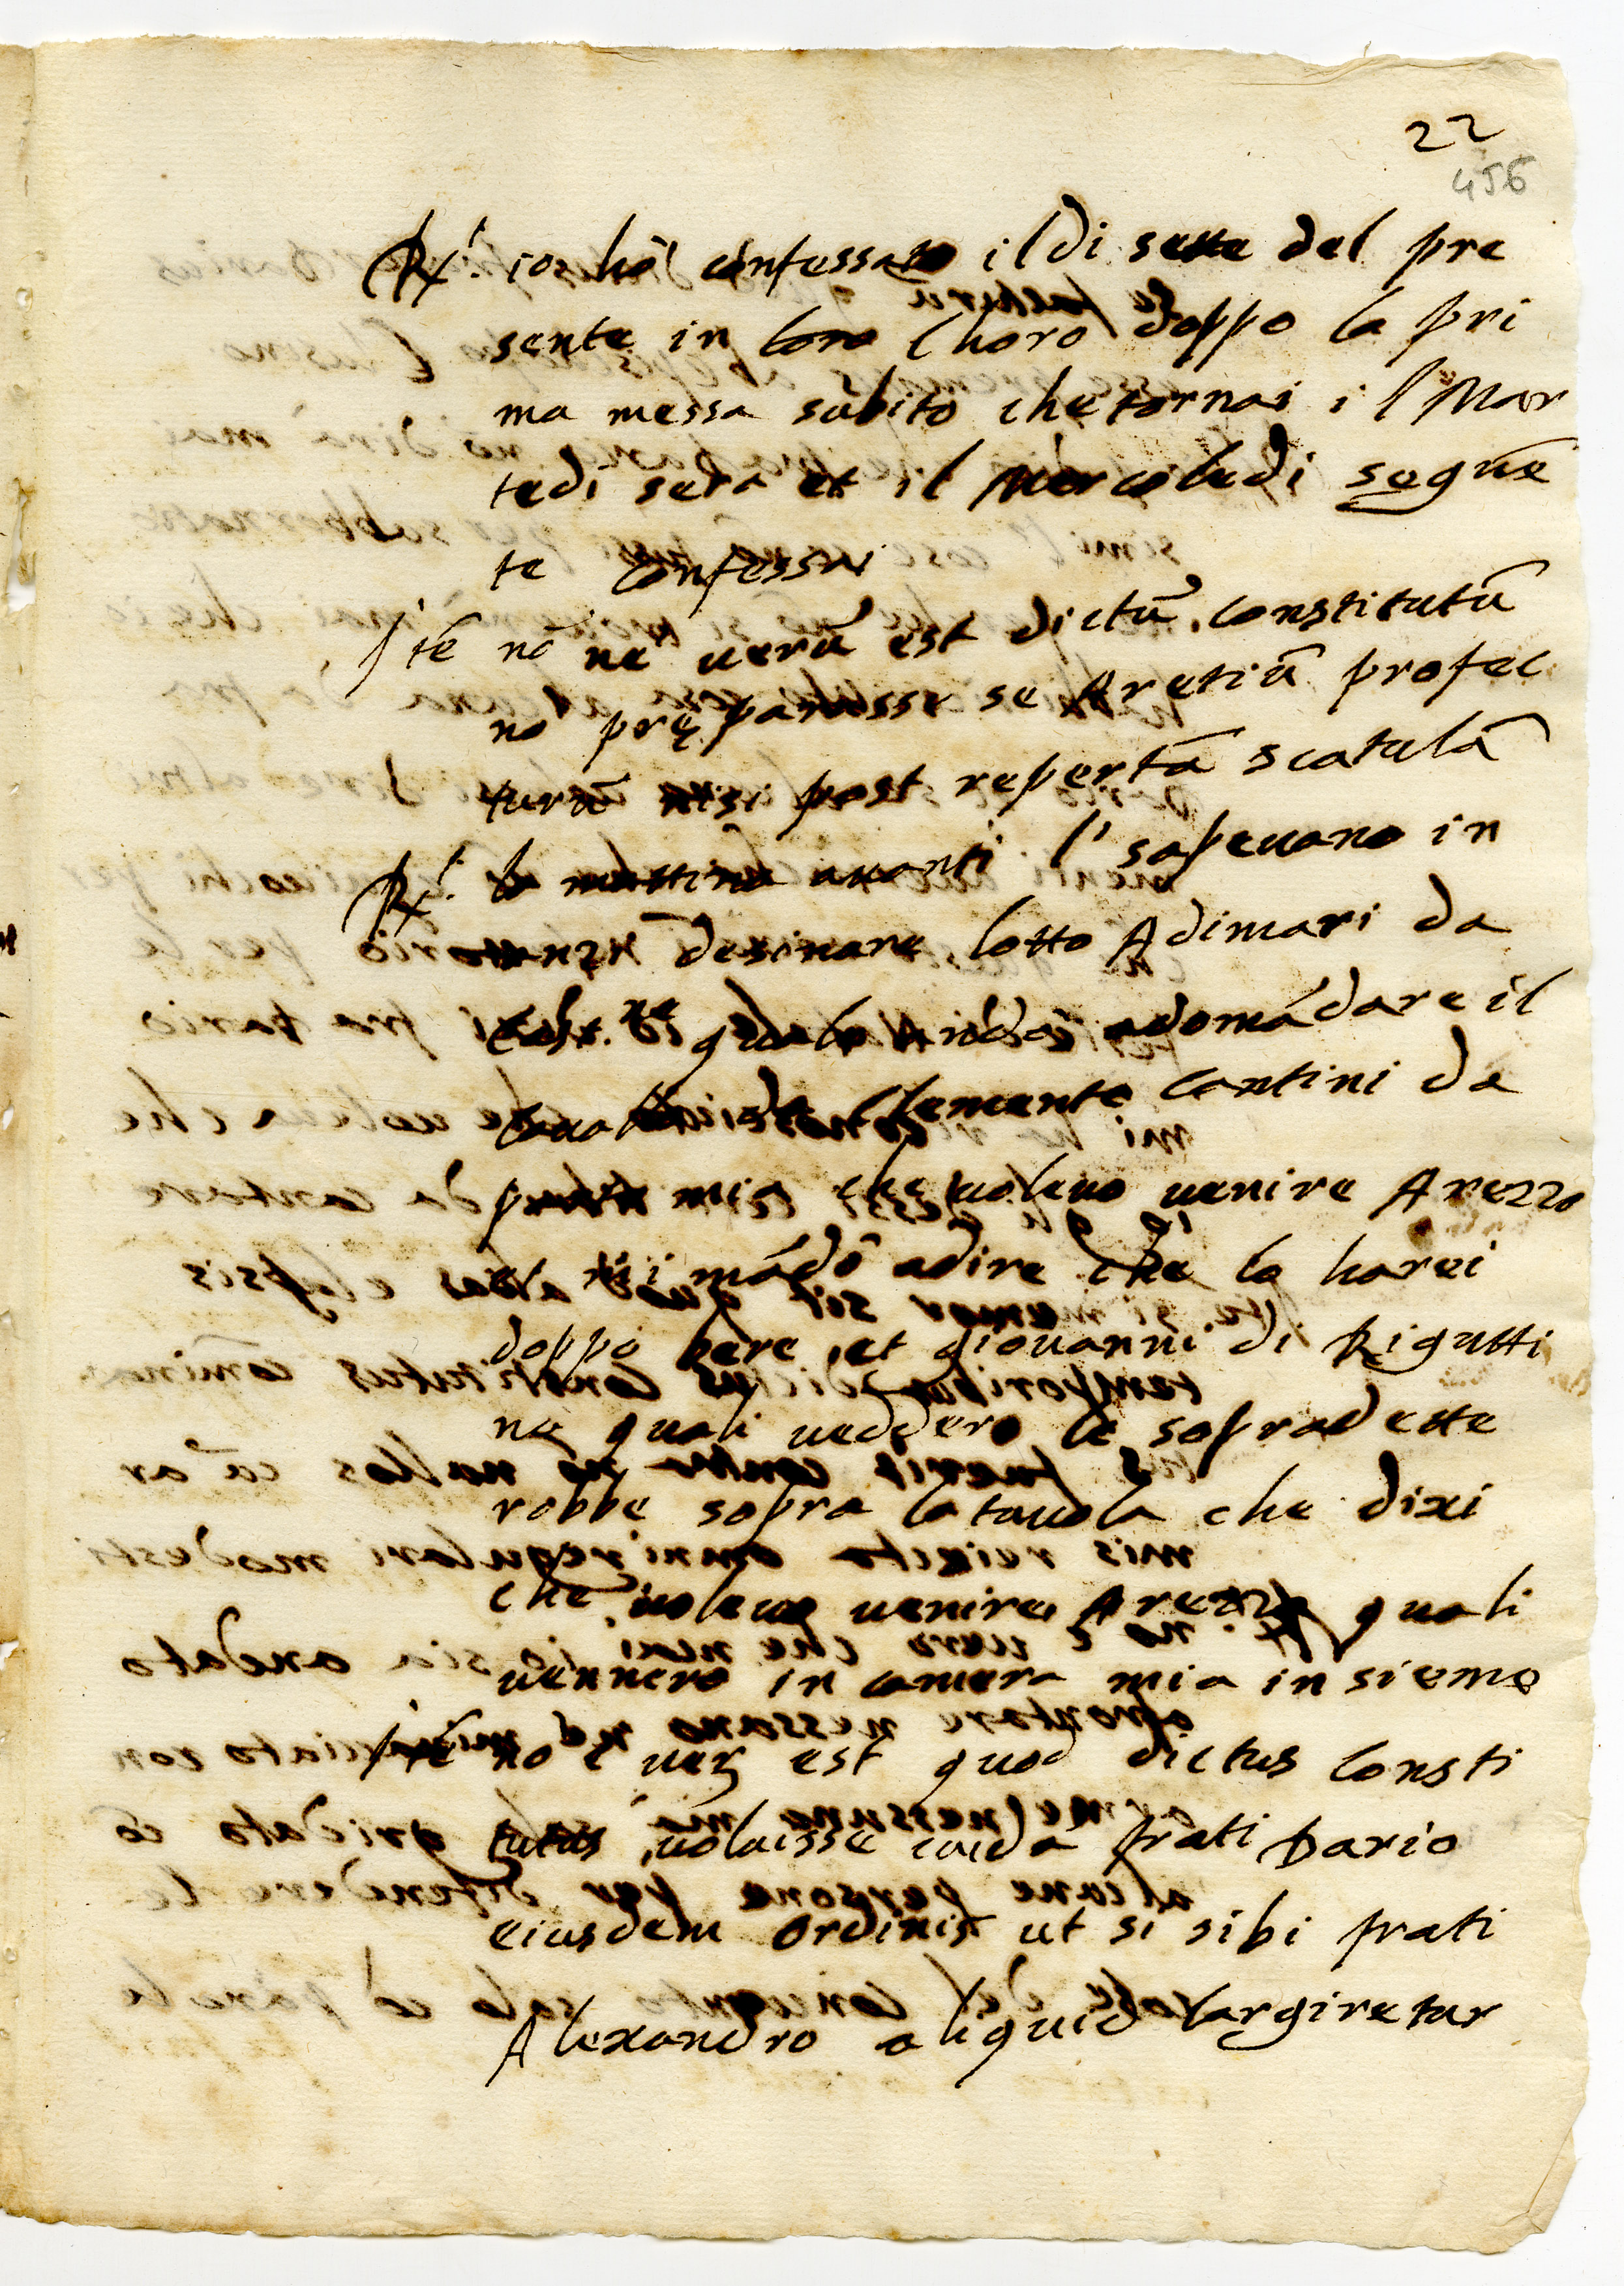 22
456
Rx.t io hò confessato il di sette del pre
sente in loro Choro doppo la pri
ma messa subito che tornai il Mar
tedi sera et il Mercoledi seguē
te confessai
Itē nō ne uerū est dictū constitutū
no pręparasse se Aretiū profec
turū nisi post repertā scatulā
Rx.t la mattina auanti l'sapeuano in
nanzi desinare lotto Adimari da
quale Andai adomādare il
cauallo Clemente cantini da
mio che uoleuo uenire Arezzo
et mi mādò adire che lo harei
doppo bere, et giouanni di Rigutti
ne quali ueddero le sopradette
robbe sopra la tauola che dixi
che uoleuo uenire Arezzo quali
uennero in camera mia insieme
Itē nō è uerū est quod dictus Consti
tutus uoluisse cuidā frati Dario
eiusdem Ordinis ut si sibi frati
Alexandro aliquid largiretur